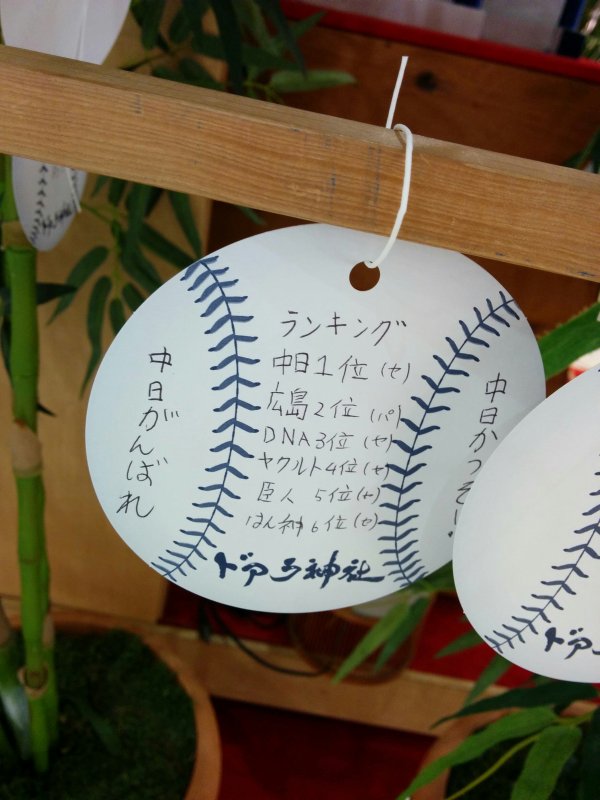 ランキング
中日1位(セ)
広島2位(パ)
DNA3位(セ)
ヤクルト4位(セ)
臣人 5位(セ)
はん神6位(セ)
中日がんばれ
中日かつぞ
ドアラ神社
ドア